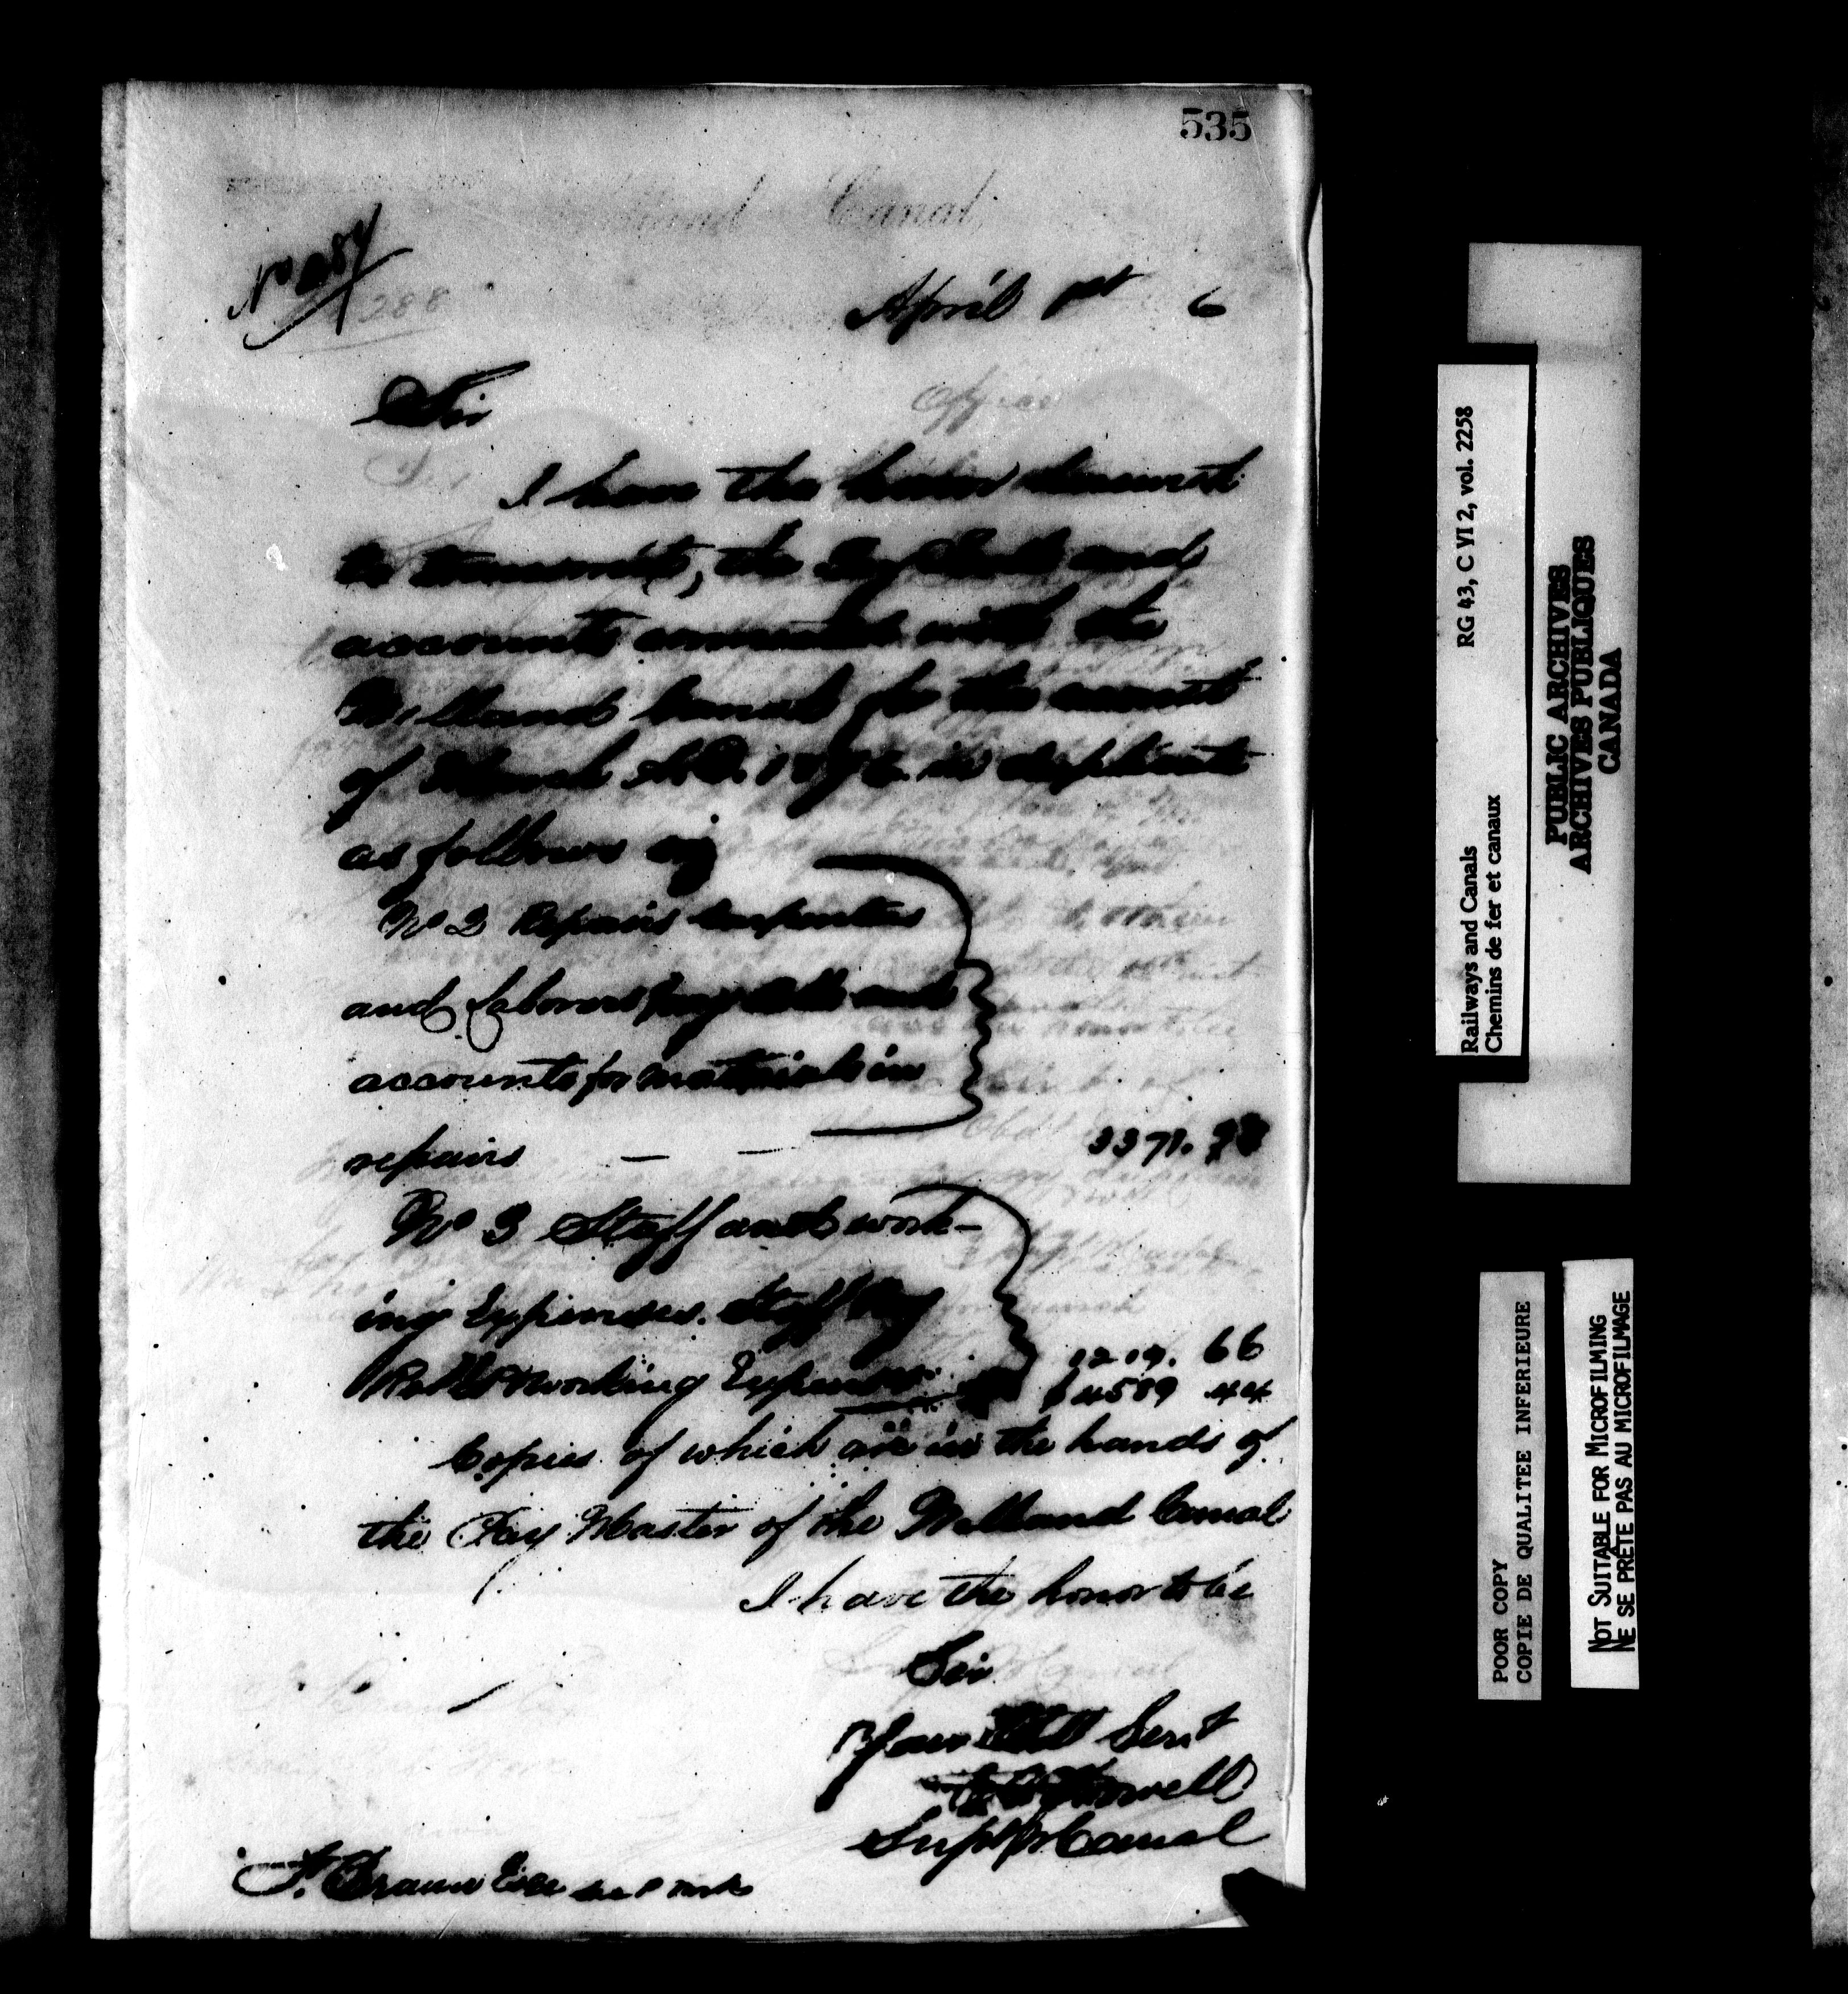 535
Canal,
No
288
April 1st 6
Sir
I have the honor herewith
to transmit, the Pay Rolls and
accounts connected with the
Welland Canal for the month
of March A.D. 1876 in duplicate
as follows viz
No 2 Repairs Carpenters
and Laborers Pay Rolls and
accounts for materials in
repairs — —
No 3 Staff and work-
ing Expenses. Staff Pay
Rolls working Expenses 1219. 66
$4589 44
Copies of which are in the hands of
the Pay Master of the Welland Canal
I have the honor to be
Sir
Your Obt Servt
Supt W Canal
F. Braun Esq Sec P Works
Railways and Canals RG 43, C VI 2, vol. 2258
Chemins de fer et canaux
PUBLIC ARCHIVES
ARCHIVES PUBLIQUES
CANADA
POOR COPY
COPIE DE QUALITEE INFERIEURE
NOT SUITABLE FOR MICROFILMING
NE SE PRÊTE PAS AU MICROFILMAGE